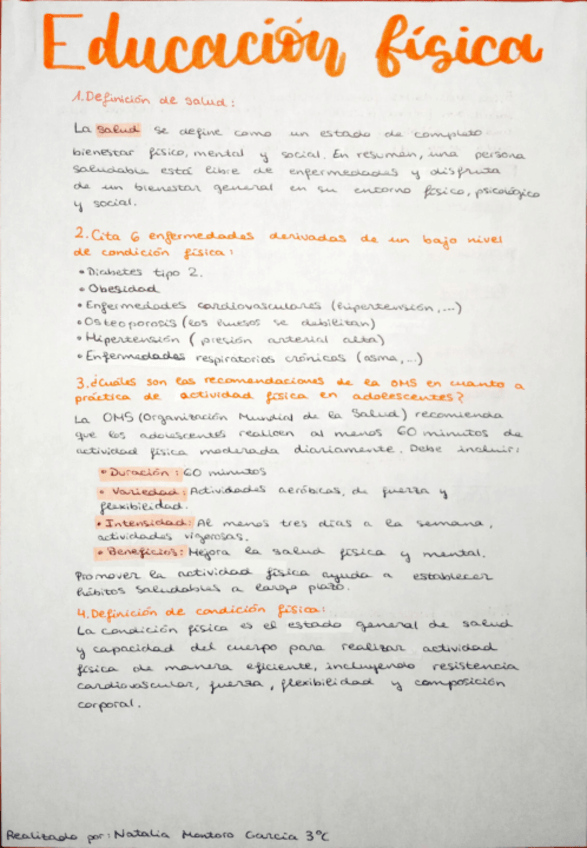 Educación física
1. Definición de salud:
La salud se define como un estado de completo
bienestar físico, mental y social. En resumen, una persona
saludable está libre de enfermedades y disfruta
de un bienestar general en su entorno físico, psicológico
y social.
2. Cita 6 enfermedades derivadas de un bajo nivel
de condición física:
• Diabetes tipo 2.
• Obesidad
• Enfermedades cardiovasculares (hipertensión,...)
• Osteoporosis (los huesos se debilitan)
• Hipertensión (presión arterial alta)
• Enfermedades respiratorias crónicas (asma,...)
3. ¿Cuáles son las recomendaciones de la OMS en cuanto a
práctica de actividad física en adolescentes?
La OMS (Organización Mundial de la Salud) recomienda
que los adolescentes realicen al menos 60 minutos de
actividad física moderada diariamente. Debe incluir:
• Duración: 60 minutos
• Variedad: Actividades aeróbicas, de fuerza y
flexibilidad.
• Intensidad: Al menos tres días a la semana,
actividades vigorosas.
• Beneficios: Mejora la salud física y mental.
Promover la actividad física ayuda a establecer
hábitos saludables a largo plazo.
4. Definición de condición física:
La condición física es el estado general de salud
y capacidad del cuerpo para realizar actividad
física de manera eficiente, incluyendo resistencia
cardiovascular, fuerza, flexibilidad y composición
corporal.
Realizado por: Natalia Montoro García 3ºC